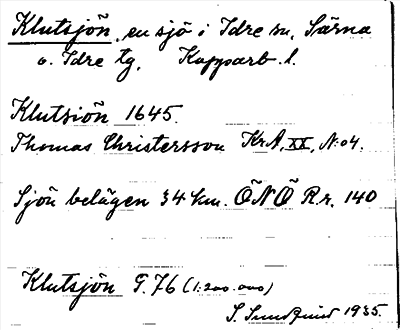 Klutsjön, en sjö i Idre sn, Särna
o. Idre tg. Kopparb. l.
Klutsiön 1645.
Thomas Christersson KrA, XX, N:o 4.
Sjön belägen 34 km. ÖNÖ R.r. 140
Klutsjön G. 76 (1:200.000)
S. Sundqvist 1935.